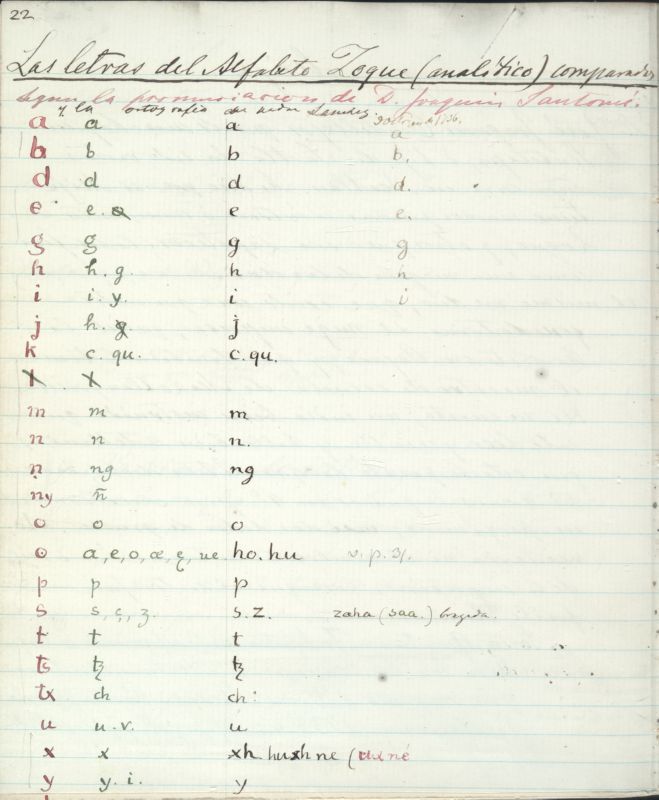 22
Las letras del Alfabeto Zoque (analítico) comparados
segun la pronunciacion de D. Joaquin Santomé:
y la ortografia de
a a a a
b b b b.
d d d d.
e e. e e.
g g g g
h h. g. h h
i i. y. i i
j h. g j
k c. qu. c. qu.
l l
m m m
n n n.
ṇ ng ng
ny ñ
o o o
o a, e, o, æ, ę, ue ho. hu v. p. 31.
p p p
s s, ç, z. s. z. zaha (saa.)
t t t
ts tz tz
tx ch ch:
u u. v. u
x x xh. hushne (uxné
y y. i. y